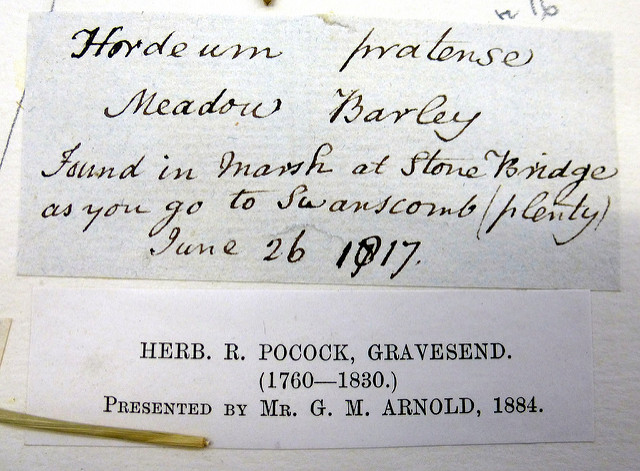 Hordeum pratense
Meadow Barley
Found in Marsh at Stone Bridge
as you go to Swanscomb (plenty)
June 26 1817.
HERB. R. POCOCK, GRAVESEND.
(1760—1830.)
PRESENTED BY MR. G. M. ARNOLD, 1884.